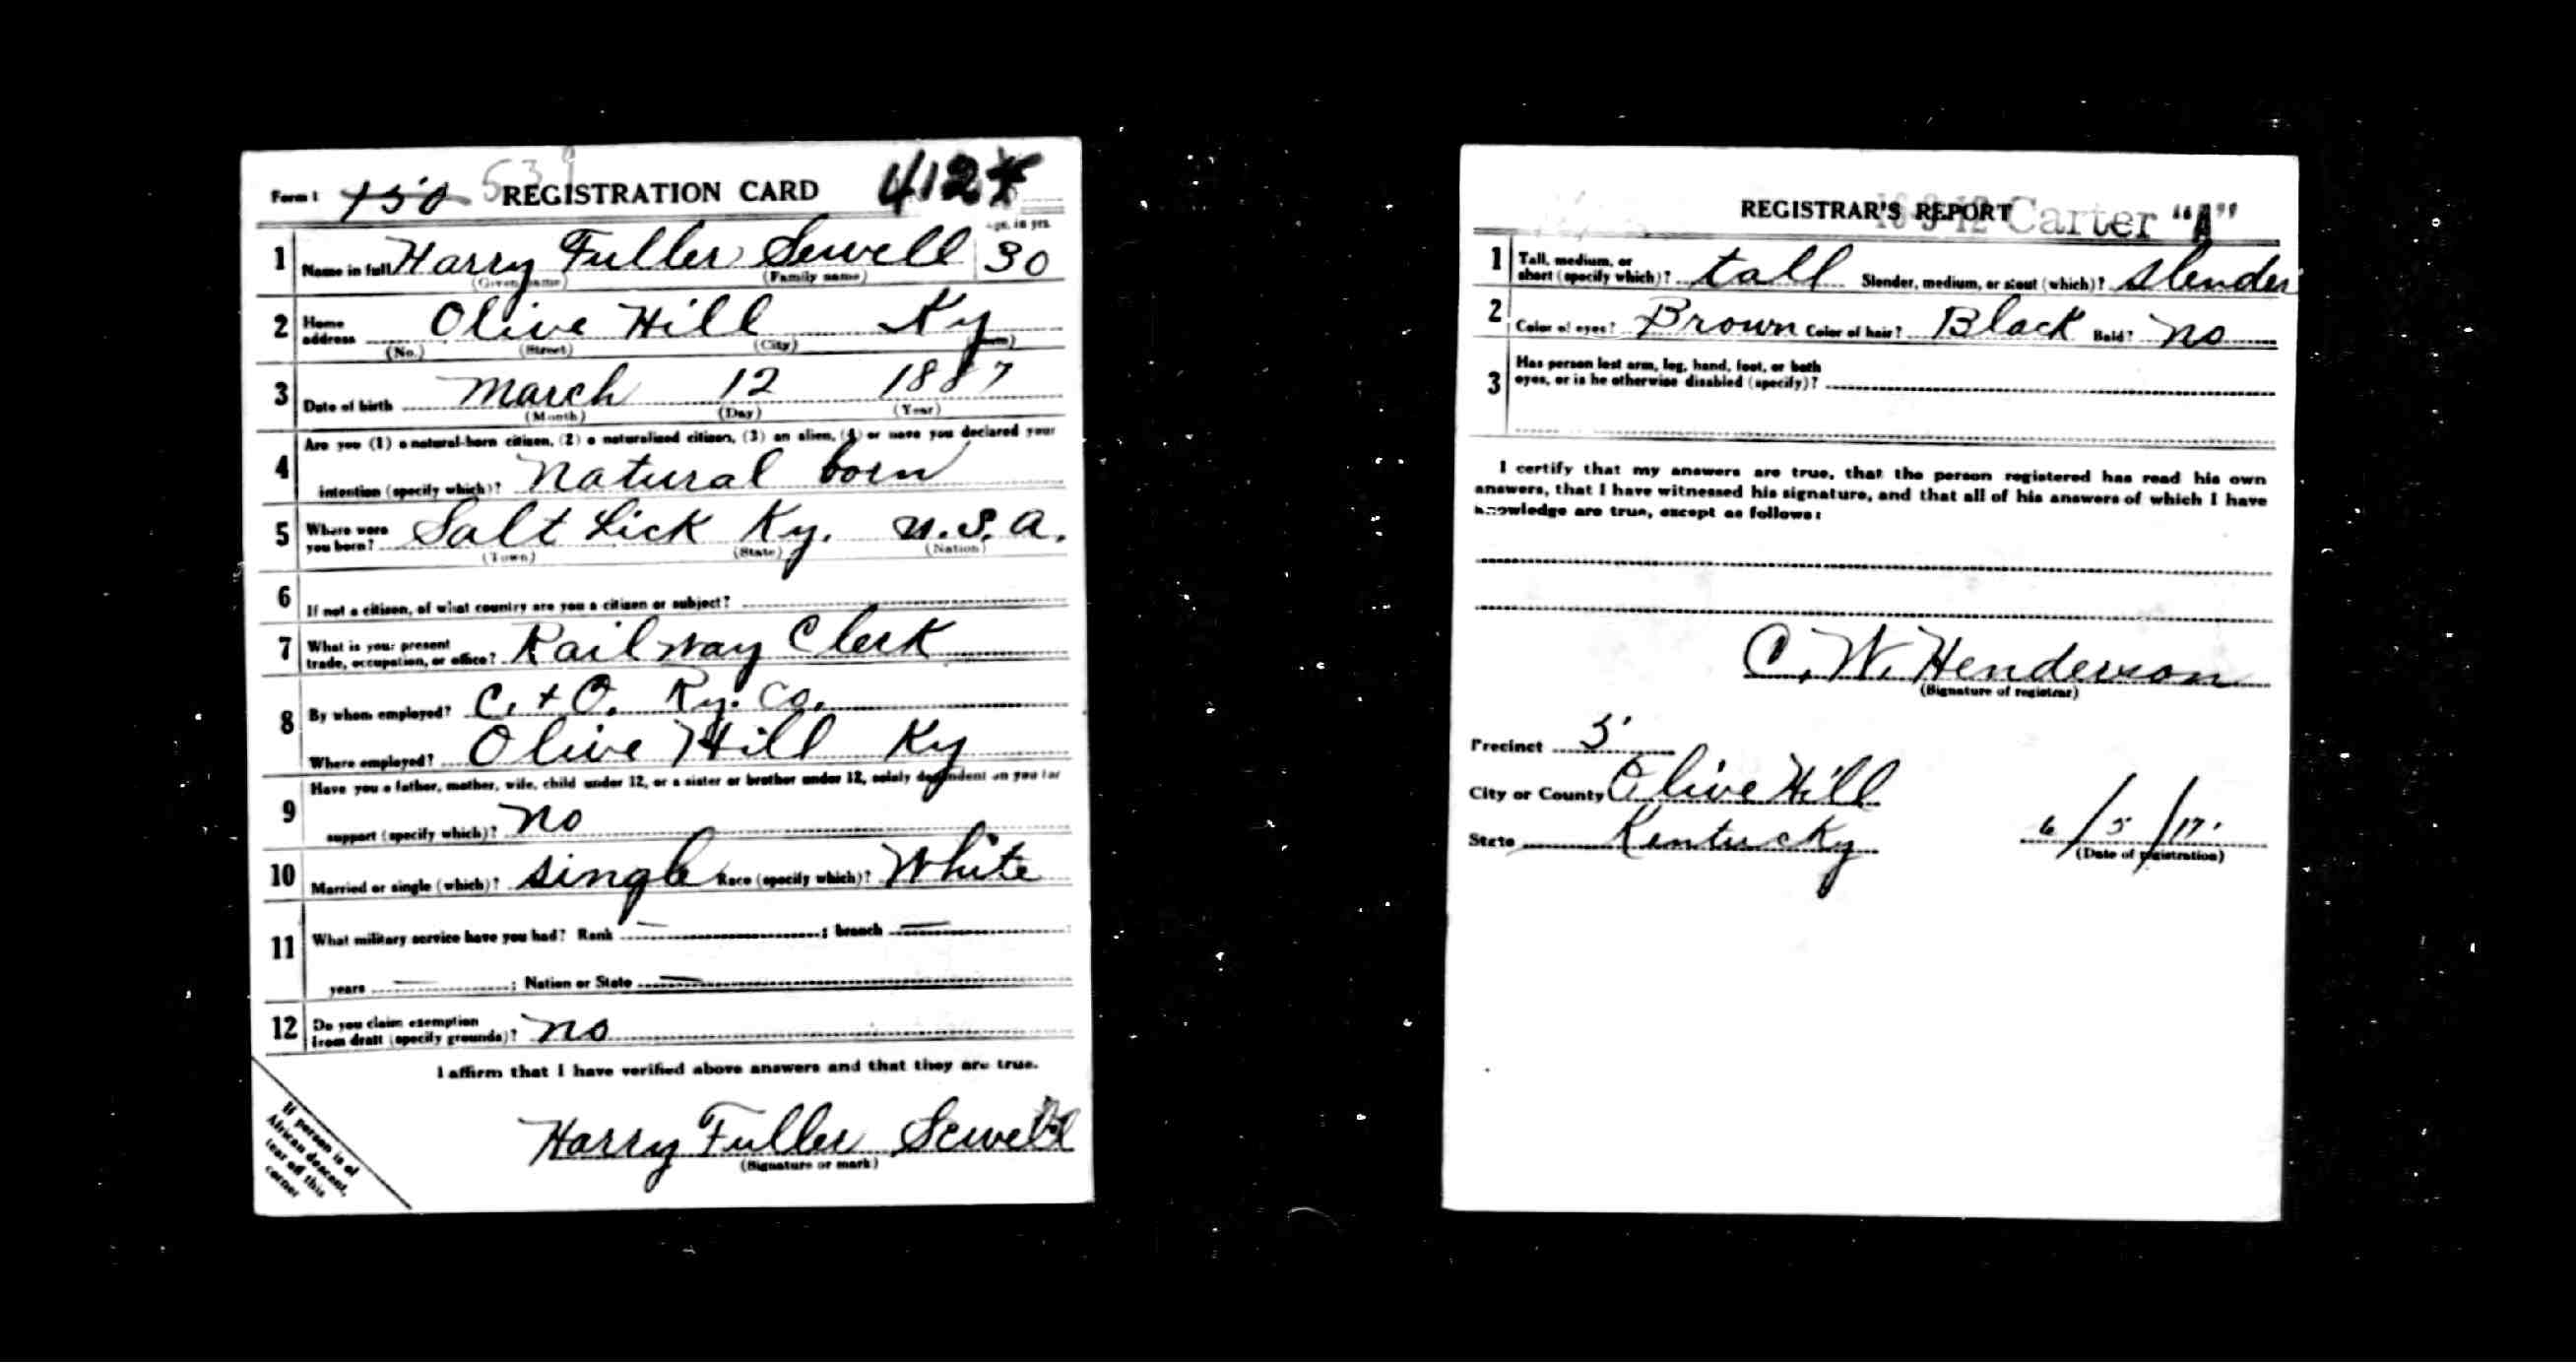 Form 1 150 539 REGISTRATION CARD 412
Age, in yrs.
1 Name in full Harry Fuller Sewell 30
(Given name) (Family name)
2 Home address Olive Hill Ky
(No.) (Street) (City) (State)
3 Date of birth March 12 1887
(Month) (Day) (Year)
Are you (1) a natural-born citizen, (2) a naturalized citizen, (3) an alien, (4) or have you declared your
4 intention (specify which)? Natural born
5 Where were you born? Salt Lick Ky. U.S.A.
(Town) (State) (Nation)
6 If not a citizen, of what country are you a citizen or subject?
7 What is your present trade, occupation, or office? Railway Clerk
8 By whom employed? C. + O. Ry. Co.
Where employed? Olive Hill Ky
Have you a father, mother, wife, child under 12, or a sister or brother under 12, solely dependent on you for
9 support (specify which)? No
10 Married or single (which)? Single Race (specify which)? White
11 What military service have you had? Rank — ; branch —
years — ; Nation or State —
12 Do you claim exemption from draft (specify grounds)? No
I affirm that I have verified above answers and that they are true.
Harry Fuller Sewell
(Signature or mark)
If person is of
African descent,
tear off this
corner
REGISTRAR'S REPORT Carter "A"
1 Tall, medium, or short (specify which)? tall Slender, medium, or stout (which)? slender
2 Color of eyes? Brown Color of hair? Black Bald? No
3 Has person lost arm, leg, hand, foot, or both
eyes, or is he otherwise disabled (specify)?
I certify that my answers are true, that the person registered has read his own
answers, that I have witnessed his signature, and that all of his answers of which I have
knowledge are true, except as follows:
C. W. Henderson
(Signature of registrar)
Precinct 5
City or County Olive Hill
State Kentucky 6/5/17
(Date of registration)